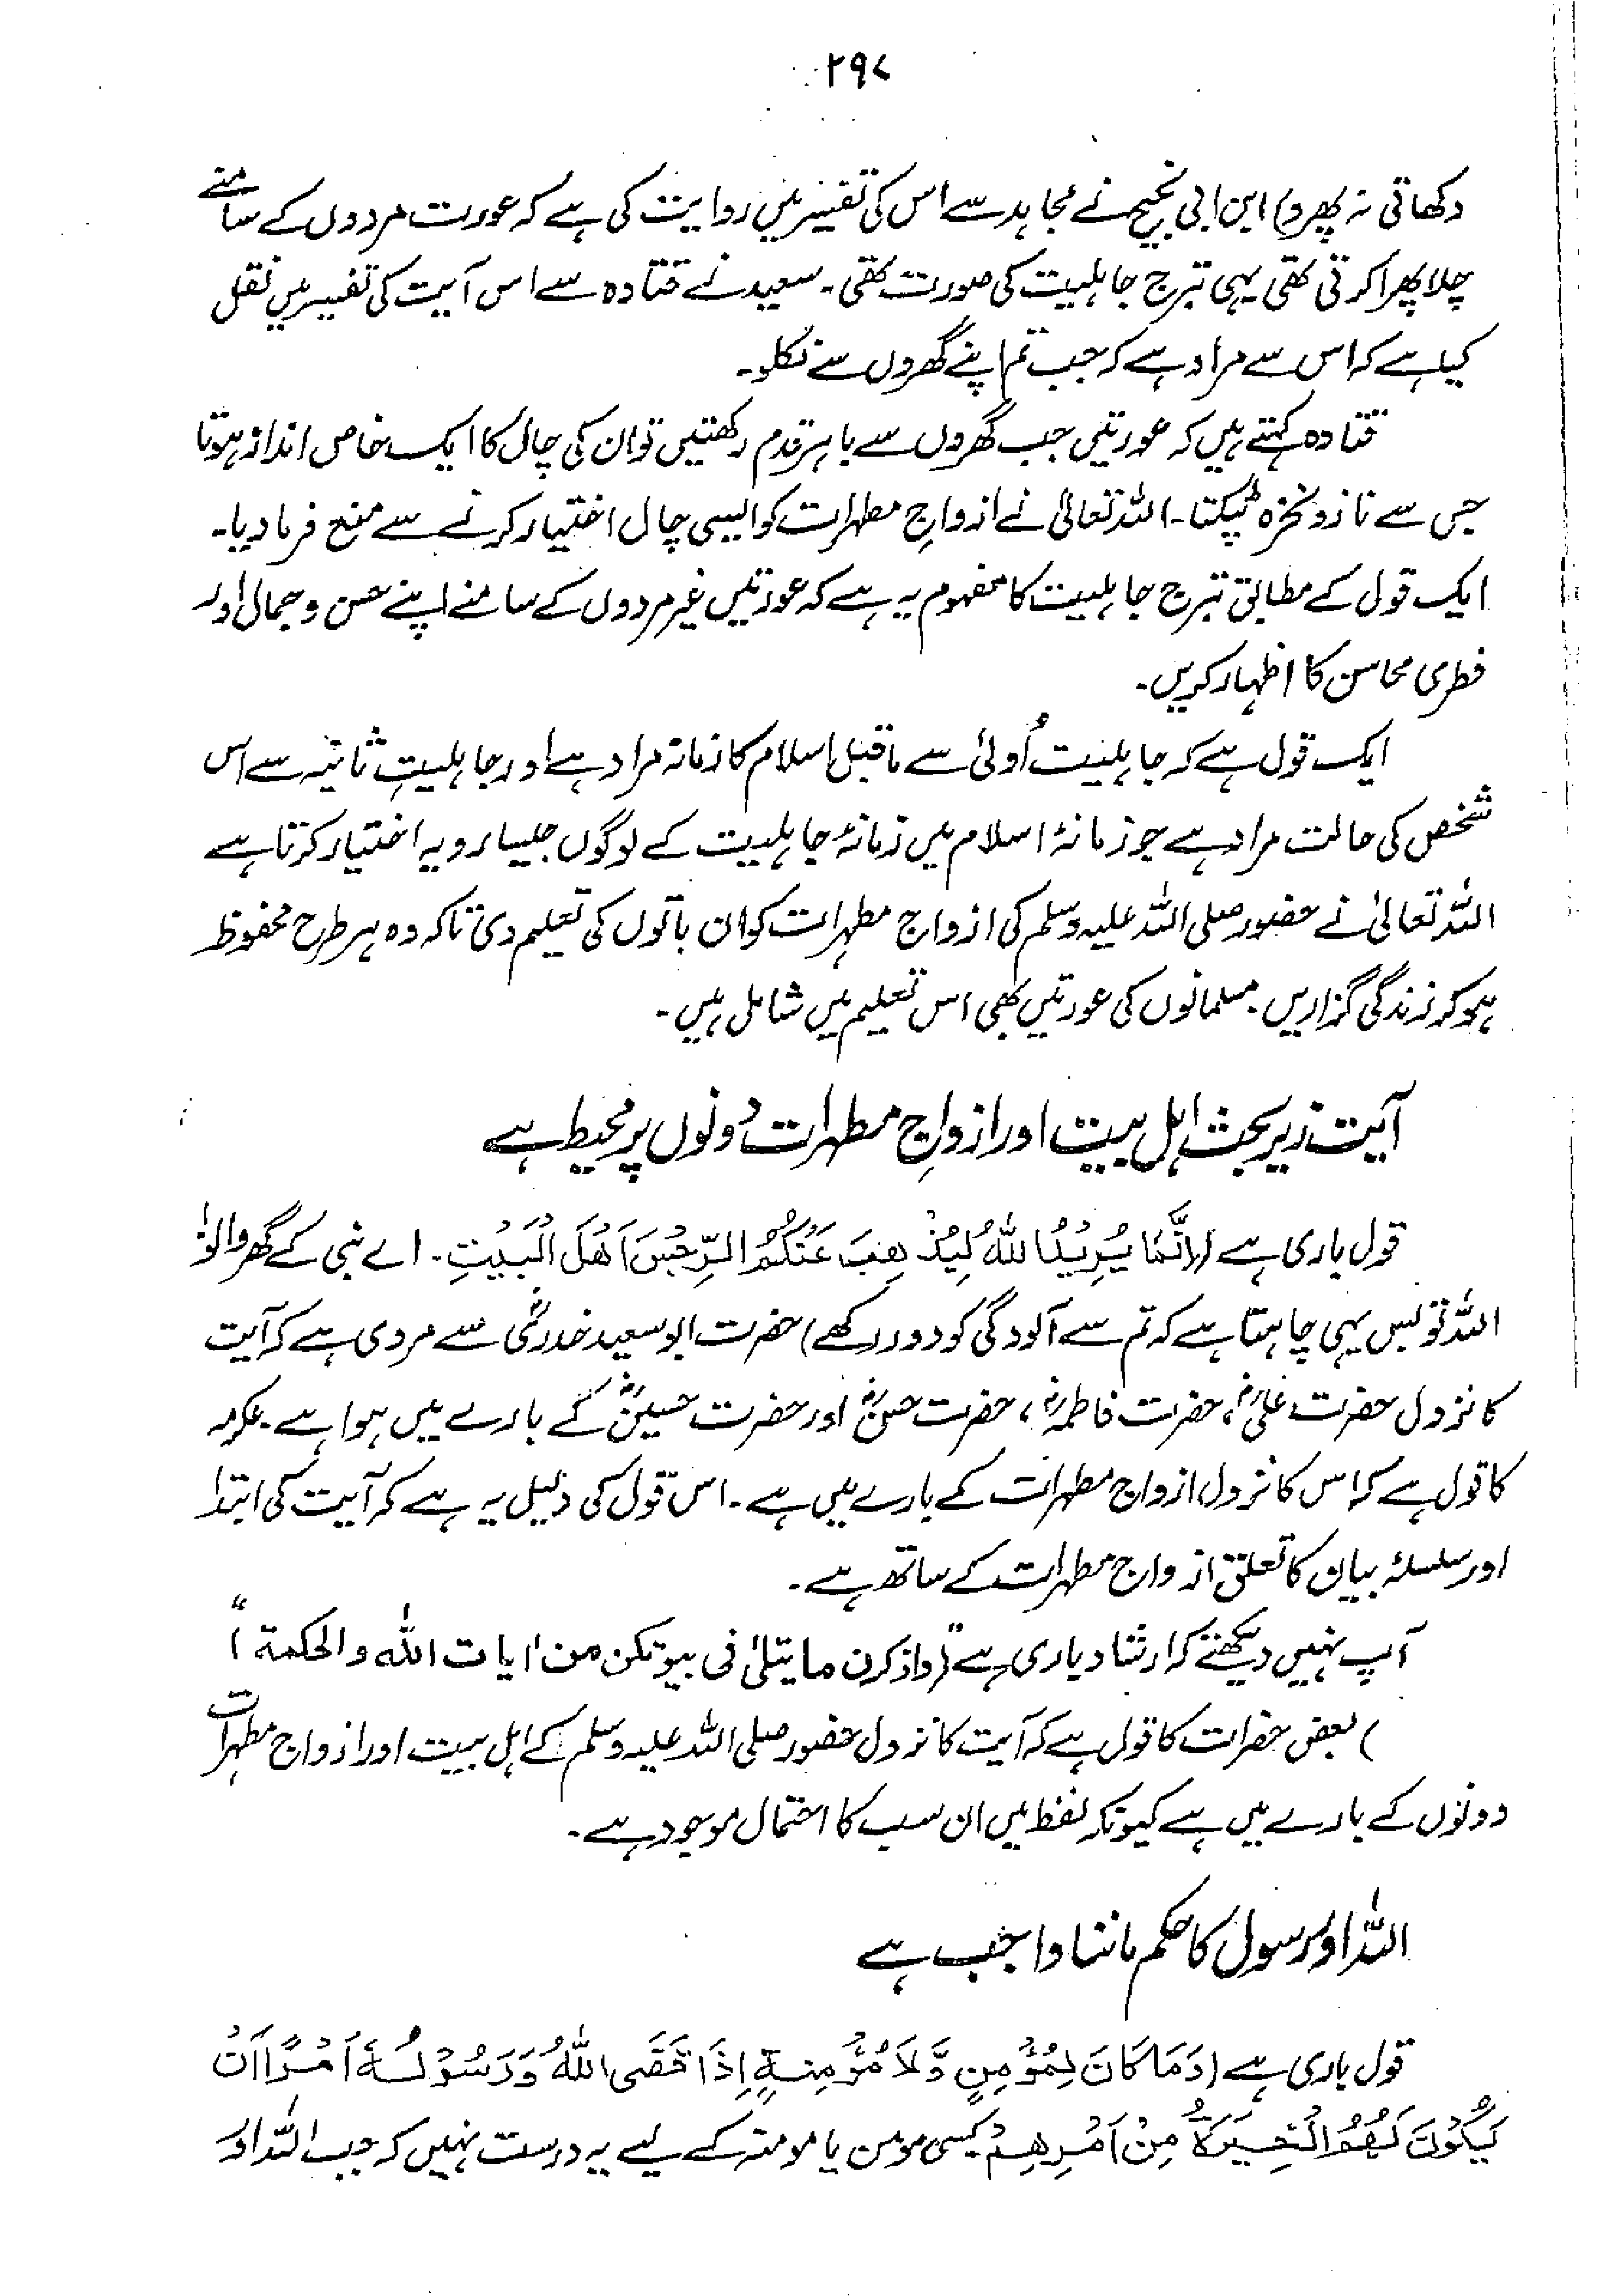 ۲۹۷
دکھاتی نہ پھرو) ابن ابی نجیح نے مجاہد سے اس کی تفسیر میں روایت کی ہے کہ عورت مردوں کے سامنے
چلا پھرا کرتی تھی یہی تبرج جاہلیت کی صورت تھی۔ سعید نے قتادہ سے اس آیت کی تفسیر میں نقل
کیا ہے کہ اس سے مراد ہے کہ جب تم اپنے گھروں سے نکلو۔
قتادہ کہتے ہیں کہ عورتیں جب گھروں سے باہر قدم رکھتیں تو ان کی چال کا ایک خاص انداز ہوتا
جس سے ناز و نخرہ ٹپکتا۔ اللہ تعالیٰ نے ازواجِ مطہرات کو ایسی چال اختیار کرنے سے منع فرما دیا۔
ایک قول کے مطابق تبرج جاہلیت کا مفہوم یہ ہے کہ عورتیں غیر مردوں کے سامنے اپنے حسن و جمال اور
فطری محاسن کا اظہار کریں۔
ایک قول ہے کہ جاہلیت اُولیٰ سے ماقبل اسلام کا زمانہ مراد ہے اور جاہلیتِ ثانیہ سے اس
شخص کی حالت مراد ہے جو زمانۂ اسلام میں زمانۂ جاہلیت کے لوگوں جیسا رویہ اختیار کرتا ہے
اللہ تعالیٰ نے حضور صلی اللہ علیہ وسلم کی ازواج مطہرات کو ان باتوں کی تعلیم دی تاکہ وہ ہر طرح محفوظ
ہو کر زندگی گزاریں۔ مسلمانوں کی عورتیں بھی اس تعلیم میں شامل ہیں۔
آیت زیر بحث اہل بیت اور ازواجِ مطہرات دونوں پر محیط ہے
قول باری ہے (اِنَّمَا یُرِیْدُ اللّٰهُ لِیُذْهِبَ عَنْکُمُ الرِّجْسَ اَهْلَ الْبَیْتِ۔ اے نبی کے گھر والو!
اللہ تو بس یہی چاہتا ہے کہ تم سے آلودگی کو دور رکھے) حضرت ابو سعید خدریؓ سے مروی ہے کہ آیت
کا نزول حضرت علیؓ، حضرت فاطمہؓ، حضرت حسنؓ اور حضرت حسینؓ کے بارے میں ہوا ہے۔ عکرمہ
کا قول ہے کہ اس کا نزول ازواج مطہرات کے بارے میں ہے۔ اس قول کی دلیل یہ ہے کہ آیت کی ابتدا
اور سلسلۂ بیان کا تعلق ازواج مطہرات کے ساتھ ہے۔
آپ نہیں دیکھتے کہ ارشاد باری ہے "(واذکرن ما یتلیٰ فی بیوتکن من اٰیات اللّٰه والحکمة)"
) بعض حضرات کا قول ہے کہ آیت کا نزول حضور صلی اللہ علیہ وسلم کے اہل بیت اور ازواج مطہرات
دونوں کے بارے میں ہے کیونکہ لفظ میں ان سب کا احتمال موجود ہے۔
اللہ اور رسول کا حکم ماننا واجب ہے
قول باری ہے (وَمَا کَانَ لِمُؤْمِنٍ وَّلَا مُؤْمِنَةٍ اِذَا قَضَی اللّٰهُ وَرَسُوْلُهٗ اَمْرًا اَنْ
یَّکُوْنَ لَهُمُ الْخِیَرَةُ مِنْ اَمْرِهِمْ کسی مومن یا مومنہ کے لیے یہ درست نہیں کہ جب اللہ اور